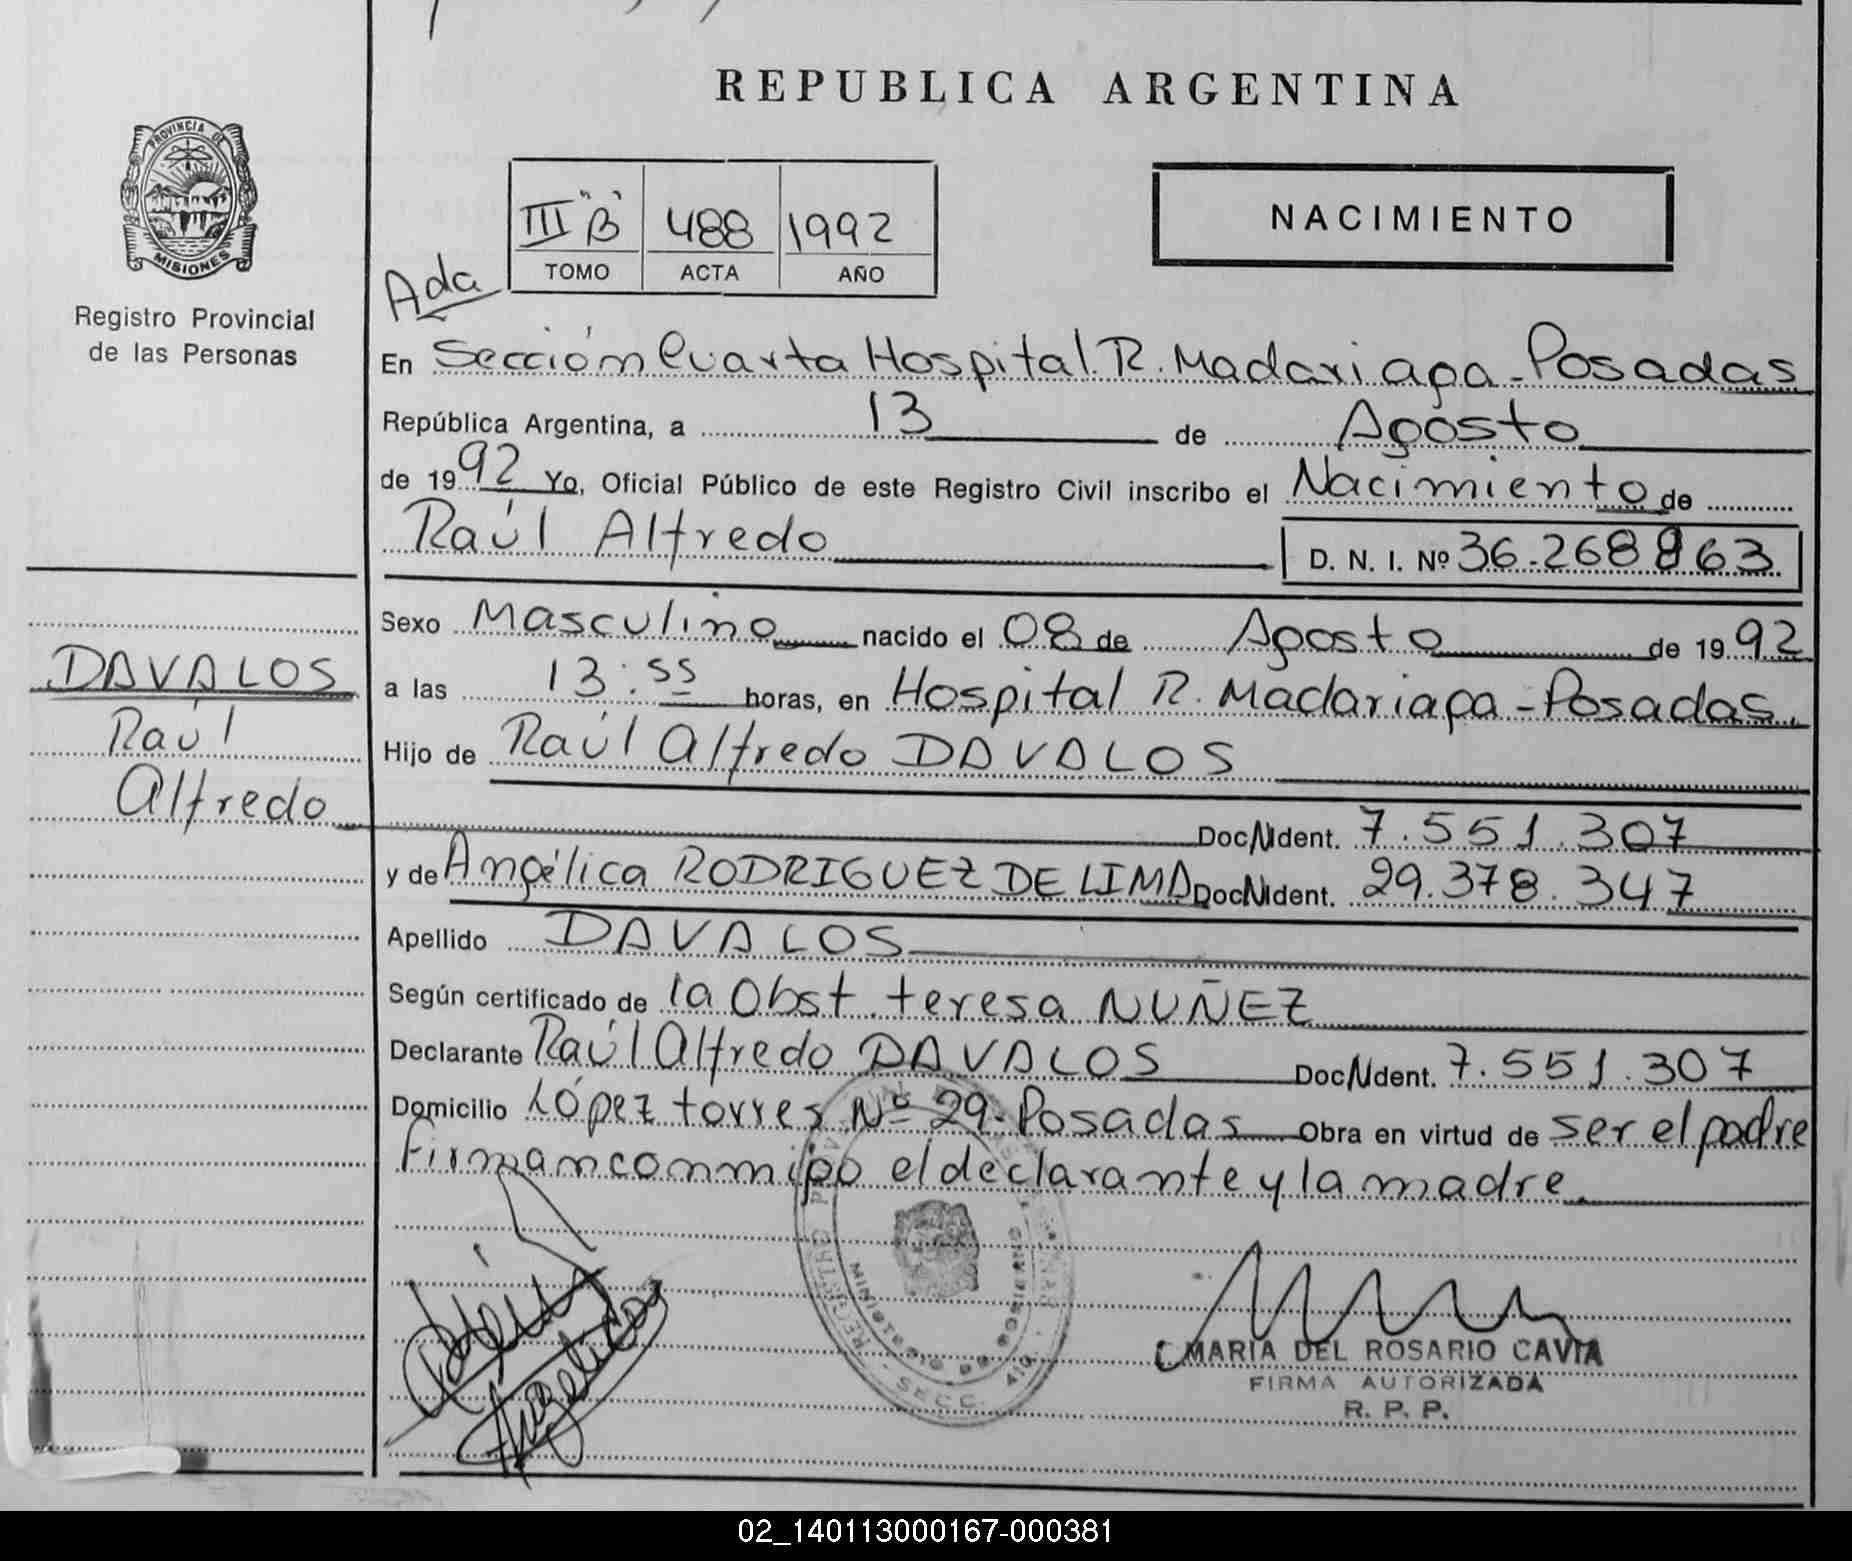 REPUBLICA ARGENTINA
PROVINCIA DE
MISIONES
Registro Provincial
de las Personas
III "B" 488 1992
TOMO ACTA AÑO
NACIMIENTO
Ada
En Sección Cuarta Hospital R. Madariaga - Posadas
República Argentina, a 13 de Agosto
de 1992 Yo, Oficial Público de este Registro Civil inscribo el Nacimiento de
Raúl Alfredo D. N. I. Nº 36.268863
Sexo Masculino nacido el 08 de Agosto de 1992
a las 13:55 horas, en Hospital R. Madariaga - Posadas.
Hijo de Raúl Alfredo DAVALOS
Doc Ident. 7.551.307
y de Angélica RODRIGUEZ DE LIMA Doc Ident. 29.378.347
Apellido DAVALOS
Según certificado de la Obst. teresa NUÑEZ
Declarante Raúl Alfredo DAVALOS Doc Ident. 7.551.307
Domicilio López torres Nº 29 - Posadas Obra en virtud de ser el padre
Firman conmigo el declarante y la madre.
DAVALOS
Raúl
Alfredo
MINISTERIO DE GOBIERNO
SECC. 4ta
MARIA DEL ROSARIO CAVIA
FIRMA AUTORIZADA
R. P. P.
02_140113000167-000381